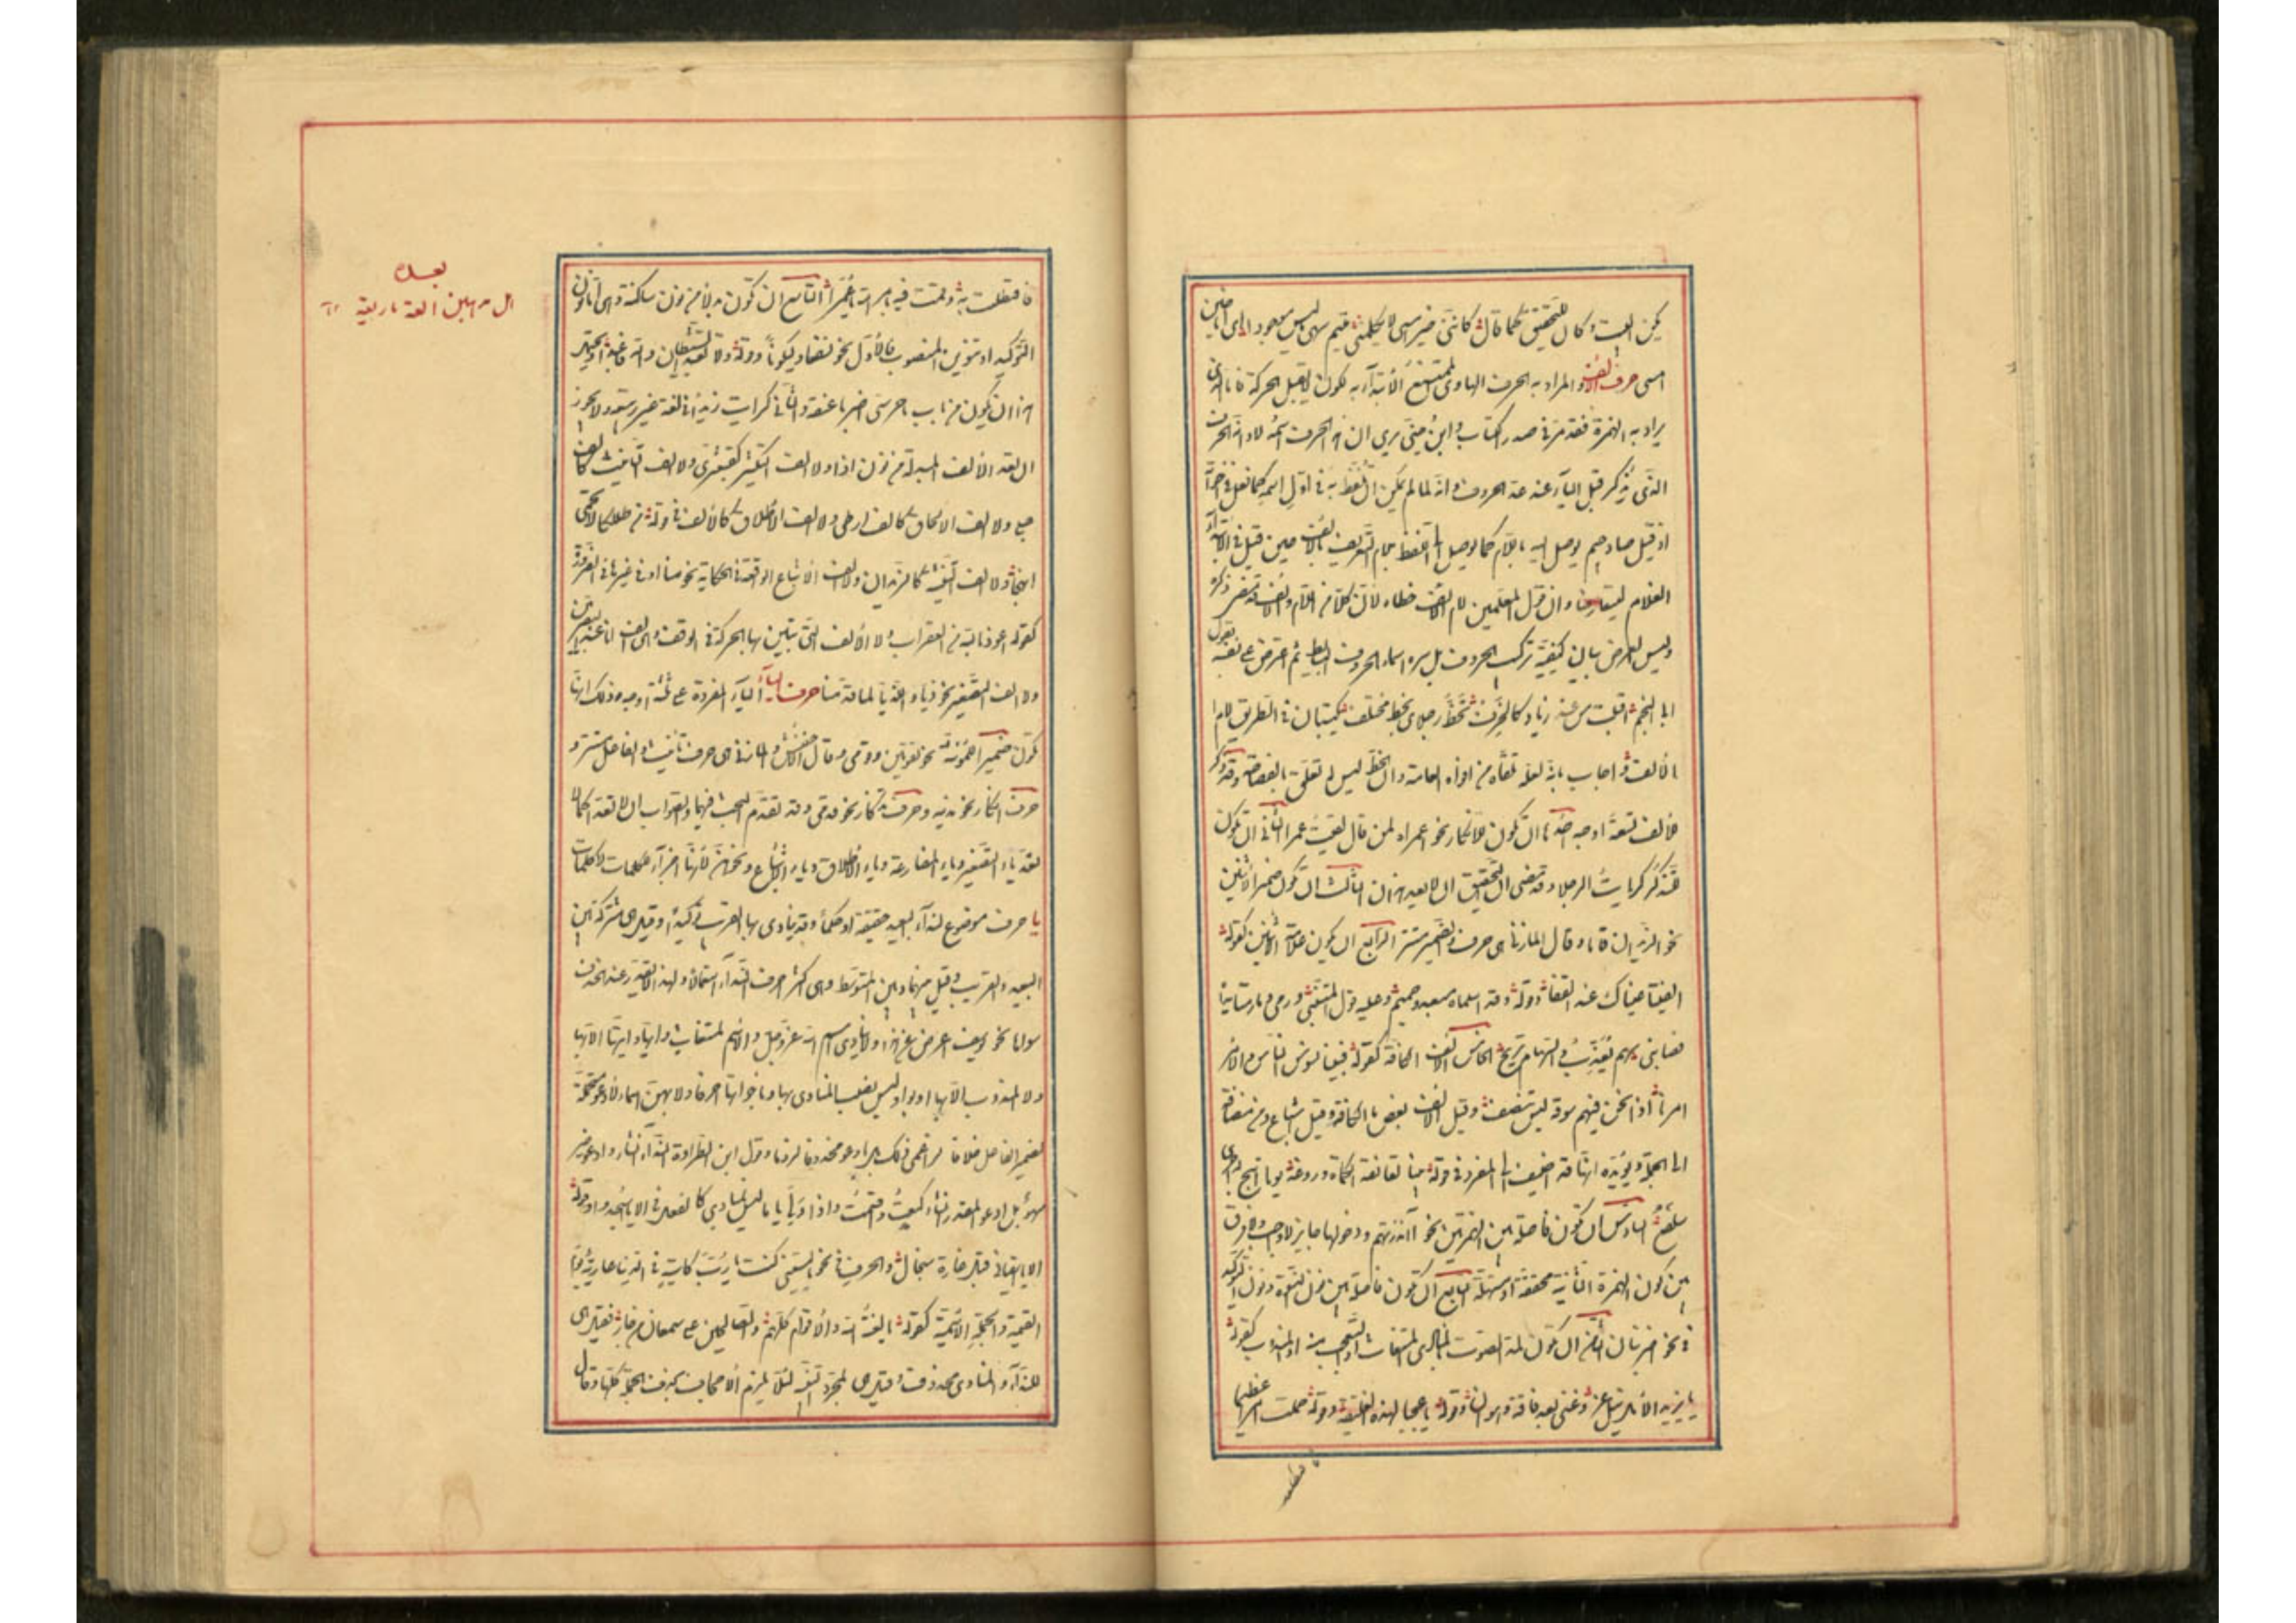 يكن ليت وكان للتحقيق كما قال كانني حين امسى لا تكلمني متيم يشتهى ما ليس موجودا اى اننى حين
امسى حرف الألف والمراد به الحرف الهاوى الممتنع الابتداء به لكونه لا يقبل الحركة فاما الذى
يراد به الهمزة فقد مر فى صدر الكتاب وابن جنى يرى ان هذا الحرف اسمه لا وانه الحرف
الذى يذكر قبل الياء عند عد الحروف وانه لما لم يمكن ان يلفظ به فى اول اسمه كما فعل فى اخواته
اذ قيل صاد جيم توصل اليه باللام كما توصل الى اللفظ بلام التعريف بالالف حين قيل فى الابتداء
الغلام ليتقارضا وان قول المعلمين لام الف خطاء لان كلا من اللام والالف قد مضى ذكره
وليس الغرض بيان كيفية تركيب الحروف بل سرد اسماء الحروف البسايط ثم اعترض على نفسه بقول
ابى النجم اقبلت من عند زياد كالخرف تخط رجلاى بخط مختلف تكتبان فى الطريق لام
الف واجاب بانه لعله تلقاه من افواه العامة وان الخط ليس له تعلق بالفصاحة وقد ذكر
للالف تسعة اوجه احدها ان تكون للانكار نحو عمراه لمن قال لقيت عمرا الثانى ان تكون
للتذكر كرايت الرجلا وقد مضى ان التحقيق ان لا يعد هذان الثالث ان تكون ضمير الاثنين
نحو الزيدان قاما وقال المازنى هى حرف والضمير مستتر الرابع ان تكون علامة الاثنين كقوله
الفيتا عيناك عند القفا وقوله وقد اسلماه مبعد وحميم وعليه قول المتنبى ورمى وما رمتا يداه
فصابنى سهم يعذب والسهام تريح الخامس الالف الكافة كقوله فبينا نسوس الناس والامر
امرنا اذا نحن فيهم سوقة ليس ننصف وقيل الالف بعض ما الكافة وقيل اشباع وبين مضافة
الى الجملة ويؤيده انها قد اضيفت الى المفرد فى قوله بينا تعانقه الكماة وروغه يوما اتيح له جرى
سلفع السادس ان تكون فاصلة بين الهمزتين نحو أانذرتهم ودخولها جايز لا واجب ولا فرق
بين كون الهمزة الثانية محققة او مسهلة السابع ان تكون فاصلة بين نون النسوة ونون التوكيد
نحو اضربنان الثامن ان تكون لمد الصوت بالمنادى المستغاث او المتعجب منه او المندوب كقوله
يا يزيدا لآمل نيل عز وغنى بعد فاقة وهوان وقوله يا عجبا لهذه الفليقة وقوله حملت امرا عظيما
فاصطبرت له وقمت فيه بامر الله يا عمرا التاسع ان تكون بدلا من نون ساكنة وهى اما نون
التوكيد او تنوين المنصوب فالاول نحو لنسفعا وليكونا وقوله ولا تعبد الشيطان والله فاعبدا ويحتمل
هذا ان يكون من باب يا حرسى اضربا عنقه والثانى كرايت زيدا فى لغة غير ربيعة ولا يجوز
ان تعد الألف المبدلة من نون اذا ولا الف التكثير كقبعثرى ولا الف التانيث كالف
حبلى ولا الف الالحاق كالف ارطى ولا الف الاطلاق كالالف فى قوله من طلل كالاتحمى
انهجا ولا الف التثنية كالزيدان ولا الف الاشباع الواقعة فى الحكاية نحو منا او فى غيرها فى الضرورة
كقوله اعوذ بالله من العقراب ولا الألف التى تبين بها الحركة فى الوقف وهى الف انا عند البصريين
ولا الف التصغير نحو ذيا واللذيا لما قدمنا حرف الياء الياء المفردة على ثلثة اوجه وذلك انها
تكون ضمير المؤنثة نحو تقومين وقومى وقال الاخفش والمازنى هى حرف تانيث والفاعل مستتر و
حرف انكار نحو ازيدنيه وحرف تذكار نحو قدى وقد تقدم البحث فيهما والصواب ان لا تعدا كما لا
تعد ياء التصغير وياء المضارعة وياء الاطلاق وياء الاشباع ونحوهن لأنهن اجزاء للكلمات لا كلمات
يا حرف موضوع لنداء البعيد حقيقة او حكما وقد ينادى بها القريب توكيدا وقيل هى مشتركة بين
البعيد والقريب وقيل بينهما وبين المتوسط وهى اكثر احرف النداء استعمالا ولهذا لا يقدر عند الحذف
سواها نحو يوسف اعرض عن هذا ولا ينادى اسم الله عز وجل والاسم المستغاث وايها وايتها الا بها
ولا المندوب الا بها او بوا وليس نصب المنادى بها وباخواتها احرفا ولا بهن اسماء لأدعو متحملة
لضمير الفاعل خلافا لزاعمى ذلك بل بادعو محذوفا لزوما وقول ابن الطراوة النداء انشاء وادعو خبر
سهو بل ادعو المقدر انشاء كبعت واقسمت واذا ولى يا ما ليس بمنادى كالفعل فى الا يا اسجدوا وقوله
الا يا اسقيانى قبل غارة سنجال والحرف فى نحو يا ليتنى كنت يا رب كاسية فى الدنيا عارية يوم
القيمة والجملة الاسمية كقوله يا لعنة الله والأقوام كلهم والصالحين على سمعان من جار فقيل هى
للنداء والمنادى محذوف وقيل هى لمجرد التنبيه لئلا يلزم الاجحاف بحذف الجملة كلها وقال